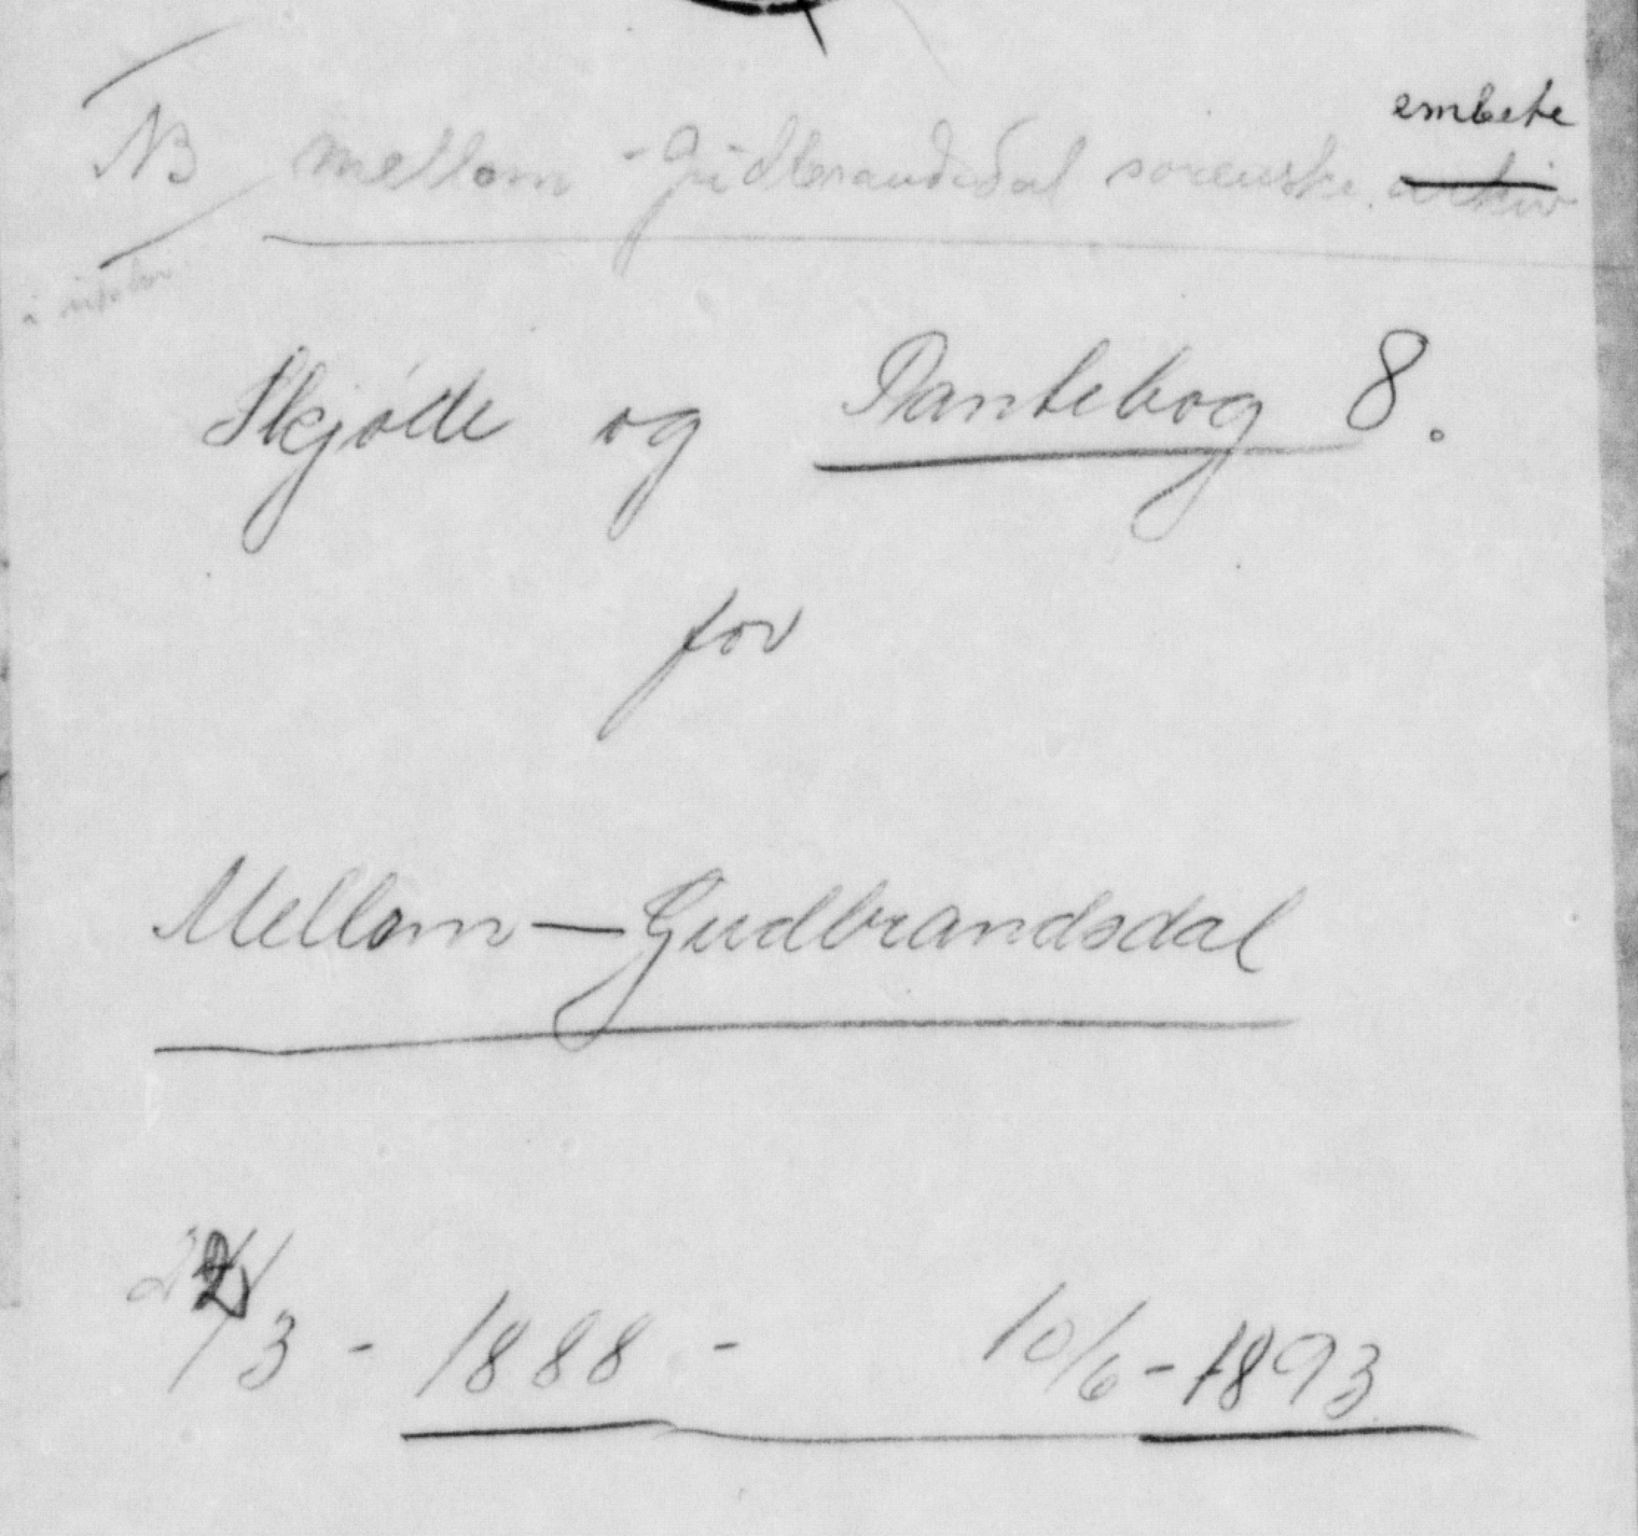 embete
NB mellom - Gudbrandsdal sorenskr. arkiv
Skjøde og Pantebog 8.
for
Mellom — Gudbrandsdal
22/3 - 1888 - 10/6 - 1893